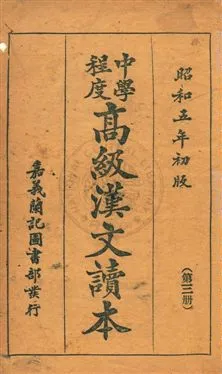 昭和五年初版
（第三册）
中學程度
高級漢文讀本
嘉義蘭記圖書部發行